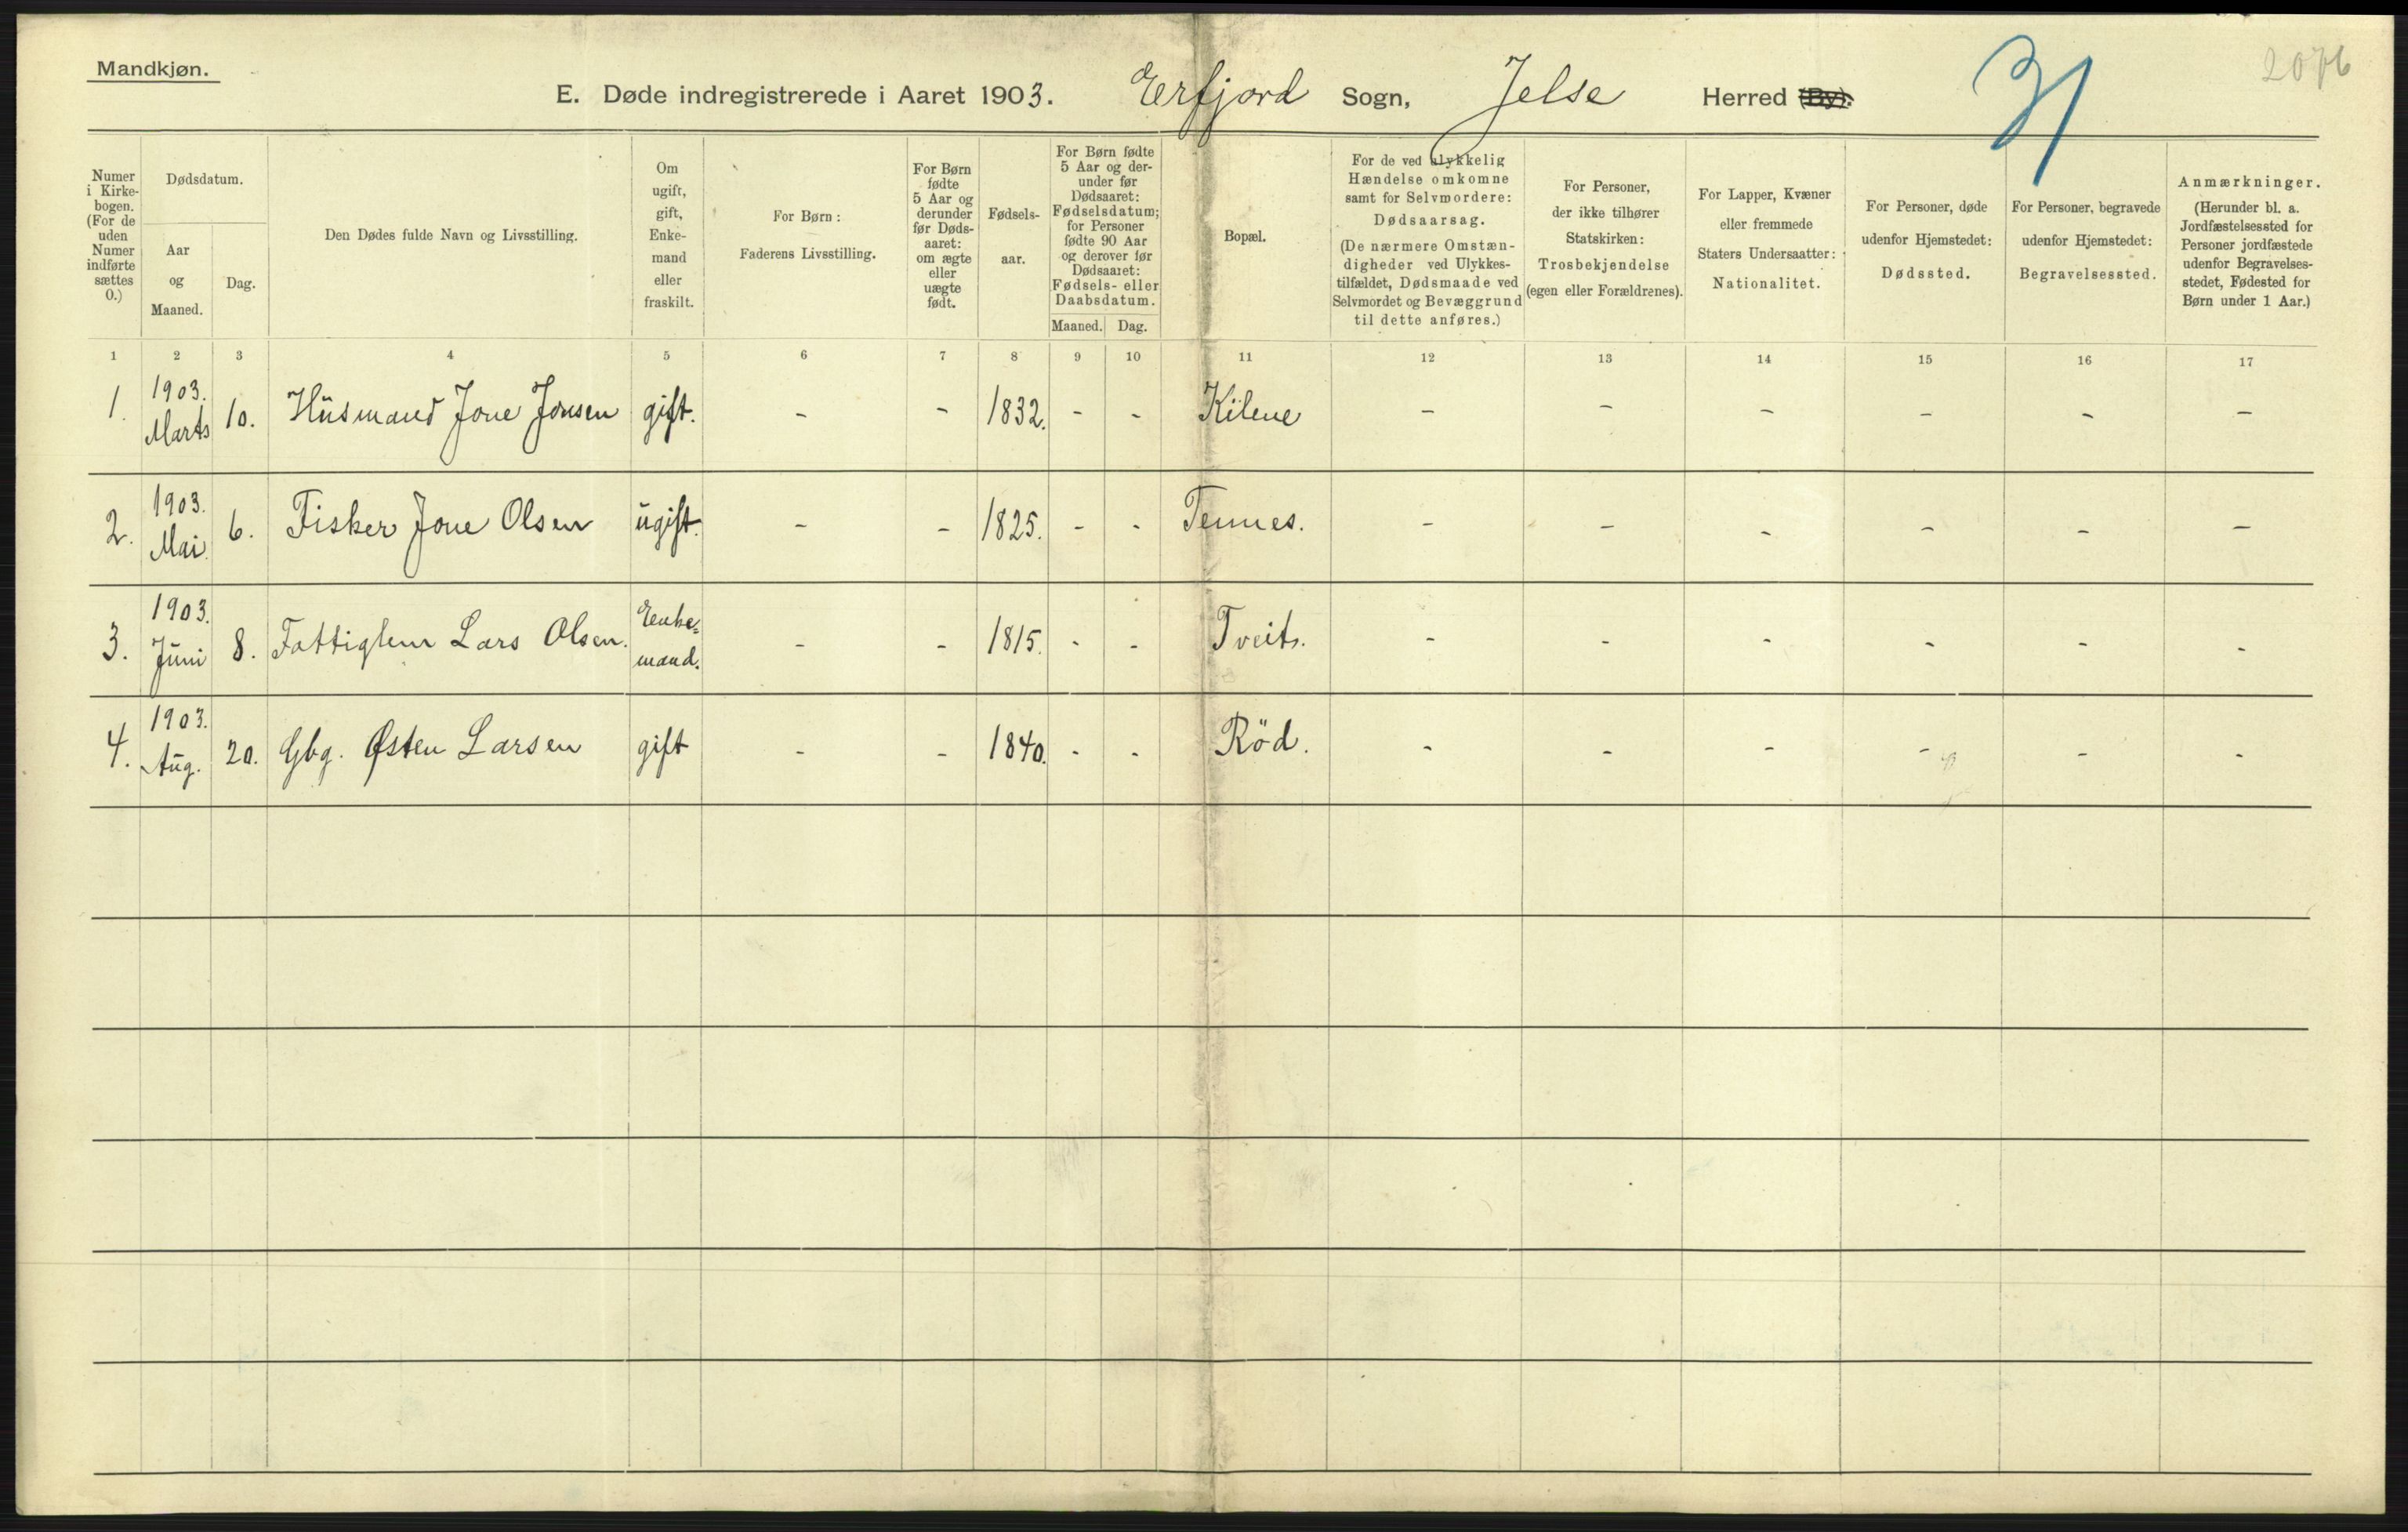 Mandkjøn.
2076
31
E. Døde indregistrerede i Aaret 1903. Erfjord Sogn, Jelse Herred (By).
Numer i Kirke-bogen. (For de uden Numer indførte sættes 0.)
Dødsdatum.
Aar og Maaned.
Dag.
Den Dødes fulde Navn og Livsstilling.
Om ugift, gift, Enke-mand eller fraskilt.
For Børn: Faderens Livsstilling.
For Børn fødte 5 Aar og derunder før Døds-aaret: om ægte eller uægte født.
Fødsels-aar.
For Børn fødte 5 Aar og der-under før Dødsaaret: Fødselsdatum; for Personer fødte 90 Aar og derover før Dødsaaret: Fødsels- eller Daabsdatum.
Maaned. Dag.
Bopæl.
For de ved ulykkelig Hændelse omkomne samt for Selvmordere: Dødsaarsag. (De nærmere Omstæn-digheder ved Ulykkes-tilfældet, Dødsmaade ved Selvmordet og Bevæggrund til dette anføres.)
For Personer, der ikke tilhører Statskirken: Trosbekjendelse (egen eller Forældrenes).
For Lapper, Kvæner eller fremmede Staters Undersaatter: Nationalitet.
For Personer, døde udenfor Hjemstedet: Dødssted.
For Personer, begravede udenfor Hjemstedet: Begravelsessted.
Anmærkninger. (Herunder bl. a. Jordfæstelsessted for Personer jordfæstede udenfor Begravelses-stedet, Fødested for Børn under 1 Aar.)
1 2 3 4 5 6 7 8 9 10 11 12 13 14 15 16 17
1. 1903. Marts 10. Husmand Jone Jonsen gift. - - 1832. - - Kilene - - - - - -
2. 1903. Mai. 6. Fisker Jone Olsen ugift. - - 1825. - - Tennes. - - - - - -
3. 1903. Juni 8. Fattiglem Lars Olsen. Enke=mand. - - 1815. - - Tveit. - - - - - -
4. 1903. Aug. 20. Gbg. Østen Larsen gift - - 1840. - - Röd. - - - - - -